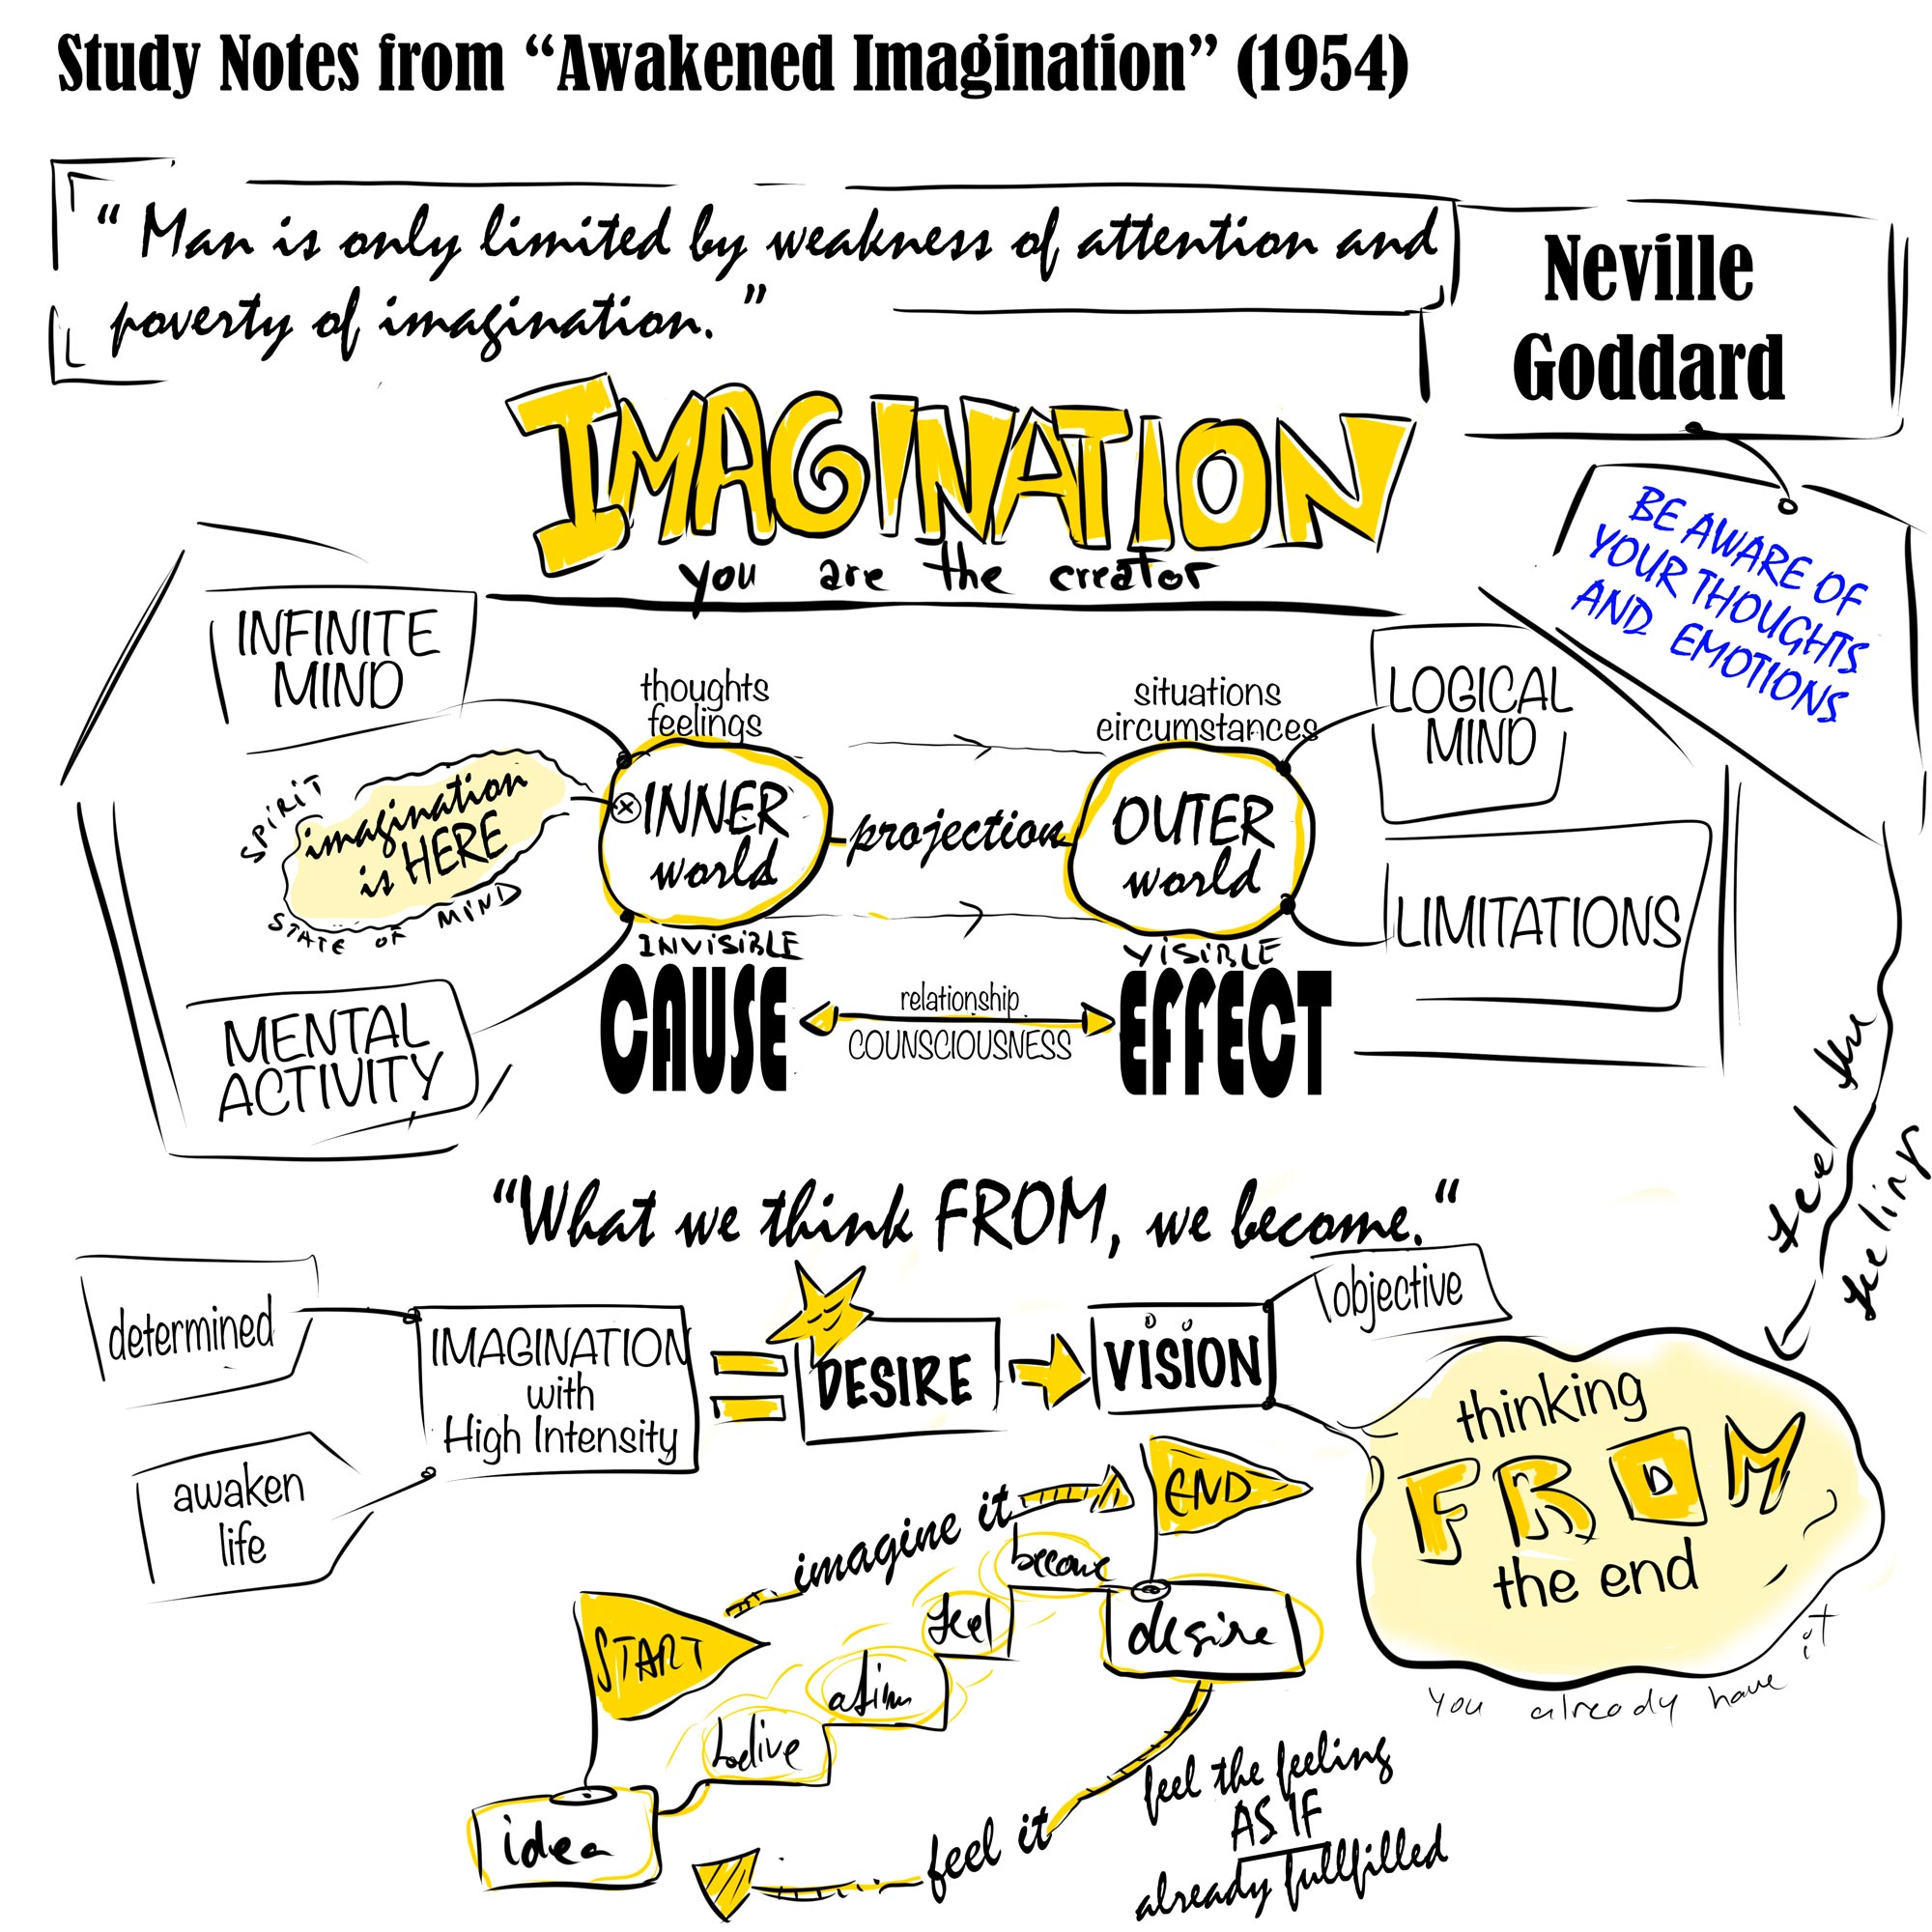 Study Notes from “Awakened Imagination” (1954)
“Man is only limited by weakness of attention and
poverty of imagination.”
Neville
Goddard
IMAGINATION
you are the creator
BE AWARE OF
YOUR THOUGHTS
AND EMOTIONS
INFINITE
MIND
thoughts
feelings
situations
circumstances
LOGICAL
MIND
SPIRIT
imagination
is HERE
STATE OF MIND
INNER
world
projection
OUTER
world
LIMITATIONS
INVISIBLE
CAUSE
relationship
COUNSCIOUSNESS
VISIBLE
EFFECT
MENTAL
ACTIVITY
feel the
feeling
“What we think FROM, we become.“
determined
IMAGINATION
with
High Intensity
awaken
life
DESIRE
VISION
objective
thinking
FROM
the end
you already have it
START
imagine it
END
idea
belive
feel
become
desire
feel it
feel the feeling
AS IF
already fullfilled